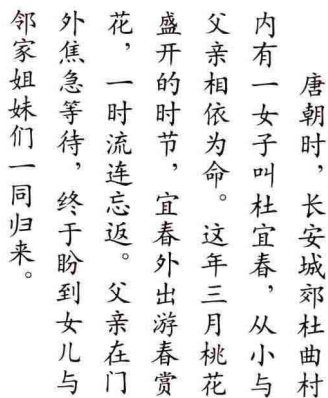 唐朝时，长安城郊杜曲村
内有一女子叫杜宜春，从小与
父亲相依为命。这年三月桃花
盛开的时节，宜春外出游春赏
花，一时流连忘返。父亲在门
外焦急等待，终于盼到女儿与
邻家姐妹们一同归来。